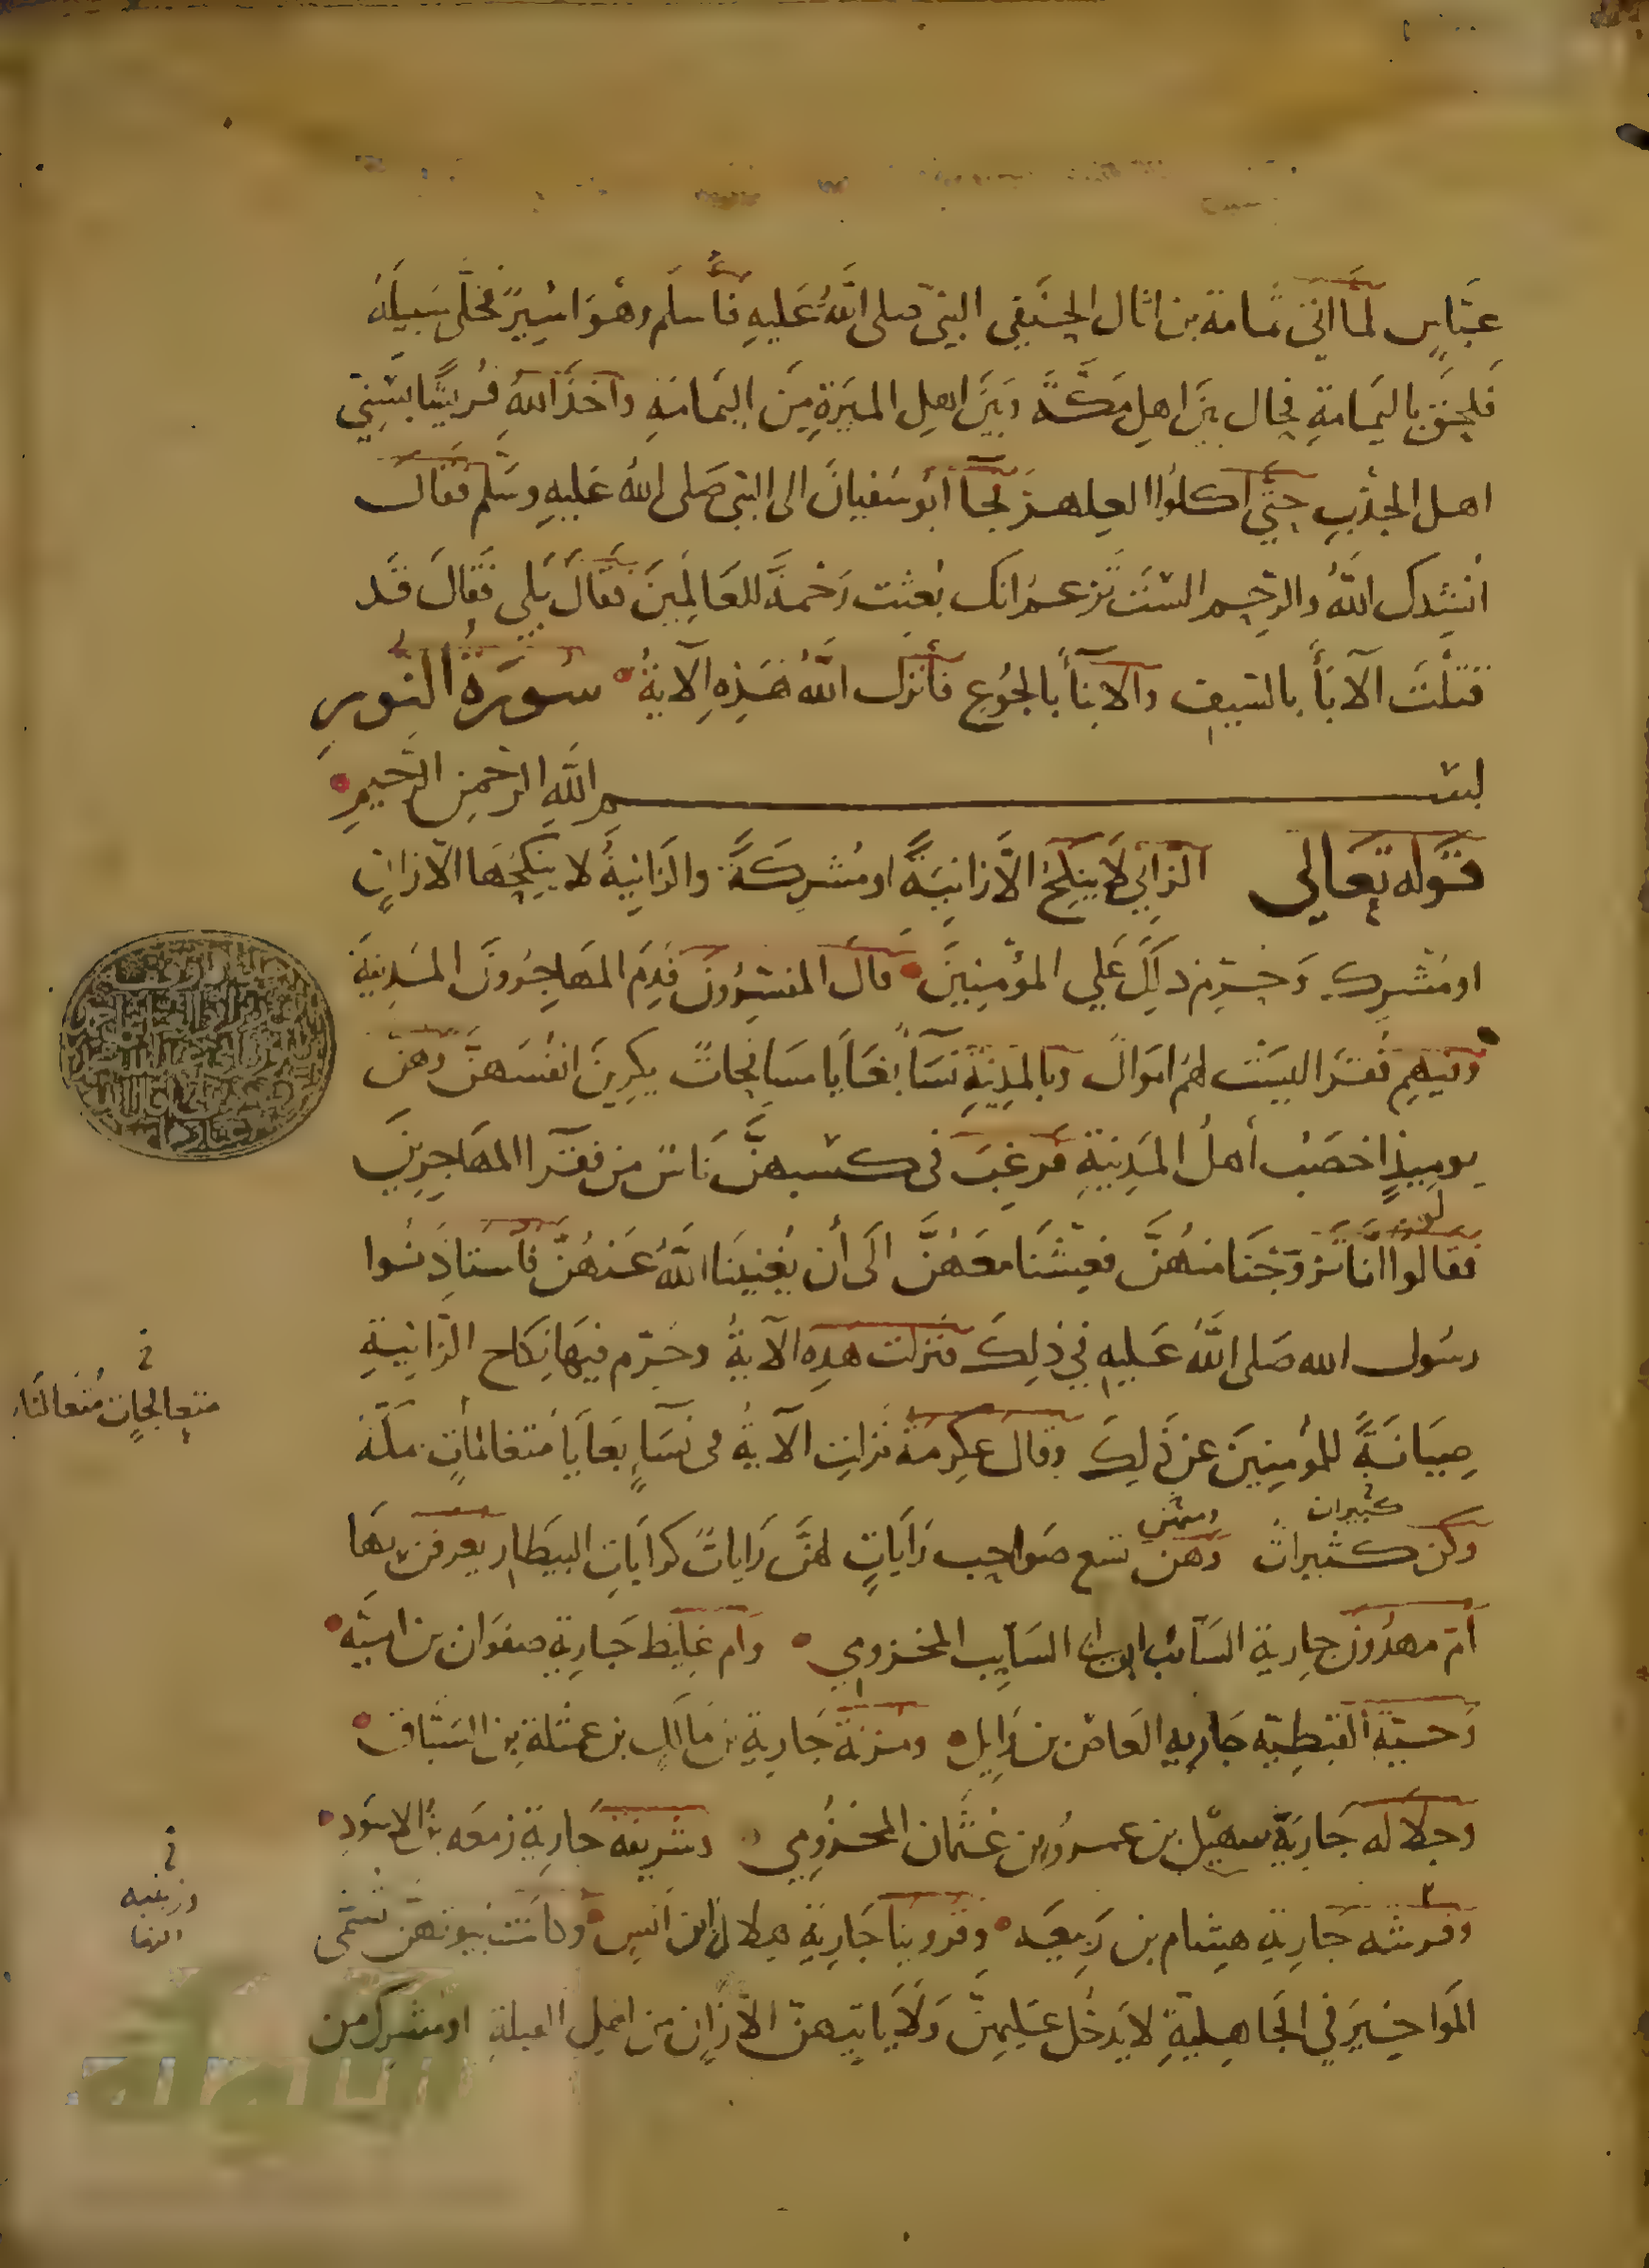 عَبَّاسٍ لما اتى ثمامة بن اثال الحنفي النبي صلى اللَّهُ عَليهِ فأسلم وهُوَ اسِيرٌ فخلَّى سَبيلَهُ
فَلحِقَ باليَمامَةِ فحال بينَ اهلِ مَكَّةَ وَبَيْنَ اهلِ الميرَةِ مِنَ اليَمَامَةِ وأخذَ اللهُ قُريشًا بسِنِي
اهل الجدْبِ حتَّى اكلوُا العلهز فجآ أبو سُفيانَ الى النبى صَلى اللهُ عَليهِ وسَلَّم فقَال
أنشِدك اللَّهُ والرحِم الستَ تزعم انك بُعثت رَحْمةً للعَالمِينَ فقالَ بَلى فَقالَ قَد
قتلْتَ الآبآَ بالسَّيفِ والأبنآَ بالجُوعِ فأنزل اللَّهُ هَذِهِ الآيةَ سُورَةُ النُّورِ
بسـم اللَّهِ الرحْمنِ الرَّحيمِ
قوله تعَالى الزاني لَا ينكِحُ الَّا زانيَةً او مُشرِكَةً والزَانِيةُ لا ينكِحُهَا الّا زانٍ
او مُشْرِك وَحُرِّم ذلكَ عَلى المؤْمِنِينَ قالَ المفسِّرُونَ قدِمَ المهَاجِرُونَ المَدِينَةَ
وَفيهِم فُقرَا ليسَتْ لهُم اموَالٌ وبالمدِينَةِ نسَآ بغَايَا مسَافِحاتٌ يكرِينَ انفُسَهنَّ وهنَّ
يومِيذٍ اخصَبُ أهلُ المَدِينةِ فرغِبَ فى كسْبهنَّ نَاسٌ من فقرآ المهَاجِرِينَ
لو
فقالوا انا تزوَّجْنَا منهُنَّ فعِشْنَا معَهُنَّ الَى أن يُغنِينَا اللَّهُ عَنهُنَّ فاستاذَنُوا
رسُول الله صَلى اللَّهُ عَليهِ في ذلِكَ فنزلت هَذِه الآيةُ وحُرِّم فيهَا نكاح الزانِيةِ
صِيَانَةً للمُؤمِنِينَ عن ذَلِكَ وقالَ عكرِمة نَزلتِ الآيةُ فى نسَآٍ بغَايَا مُتعَالماتٍ بمكَّة
كثيرات
وكن كثيراتٌ وَهن تسع صَواحِب رَايَاتٍ لهنَّ رَاياتٌ كرَايَاتِ البيطارِ يعرفنَ بهَا
أمّ مهدُون جارية السَّائب بن ابي السَايِب المخزومي وأم غليظ جَارِية صفوَان بن اميَّه
وَحيّة القبطيّه جَاريه العَاص بن وَايل ومزنَة جَارِية بن مالك بن عمثلة بن السَّبَّاق
وجلاله جَاريَة سهَيْل بن عمرو بن عُثمان المخزُومي وشريفة جَارية زمعَه بن الاسَودِ
وفرشه جَاريَة هِشَام بن رَبيعَه وفرونا جَارِيةَ هِلال بن انسٍ وكانَت بُيوتهنّ تسَمّى
الموَاخيرَ في الجَاهِليَّةِ لا يَدخُل عَليهِنَّ وَلَا يَاتيهنّ الّا زانٍ من اهلِ القبلَةِ او مشركٌ من